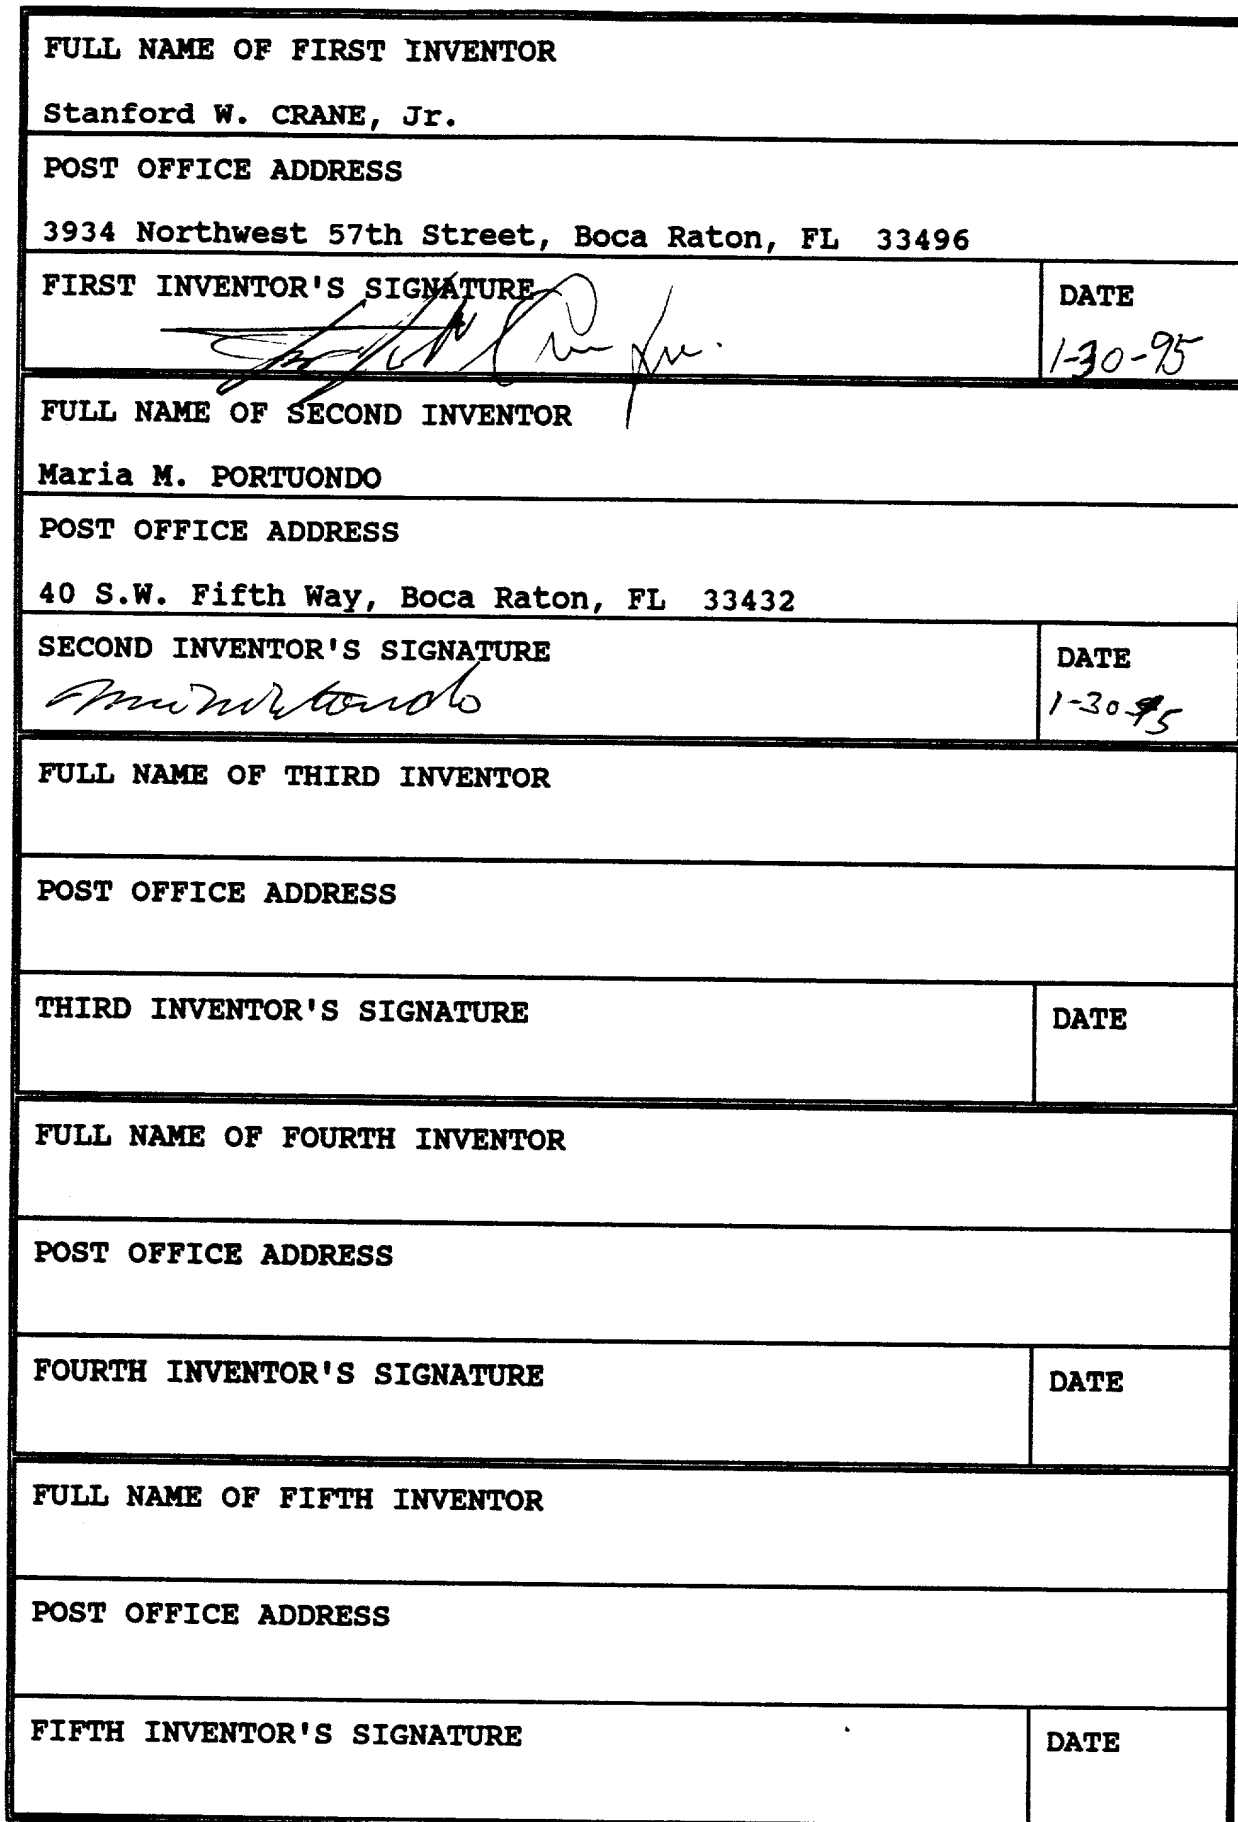 FULL NAME OF FIRST INVENTOR
Stanford W. CRANE, Jr.
POST OFFICE ADDRESS
3934 Northwest 57th Street, Boca Raton, FL 33496
FIRST INVENTOR'S SIGNATURE
DATE
1-30-95
FULL NAME OF SECOND INVENTOR
Maria M. PORTUONDO
POST OFFICE ADDRESS
40 S.W. Fifth Way, Boca Raton, FL 33432
SECOND INVENTOR'S SIGNATURE
DATE
1-30-95
FULL NAME OF THIRD INVENTOR
POST OFFICE ADDRESS
THIRD INVENTOR'S SIGNATURE
DATE
FULL NAME OF FOURTH INVENTOR
POST OFFICE ADDRESS
FOURTH INVENTOR'S SIGNATURE
DATE
FULL NAME OF FIFTH INVENTOR
POST OFFICE ADDRESS
FIFTH INVENTOR'S SIGNATURE
DATE